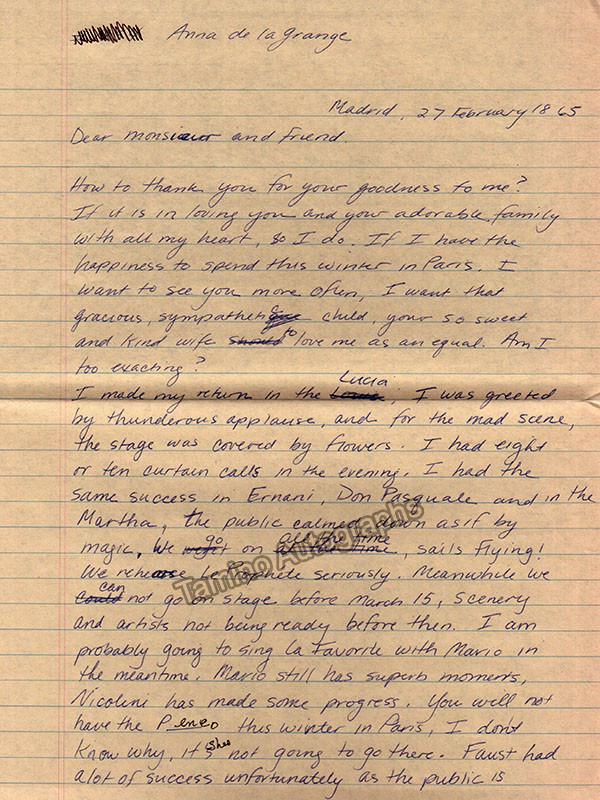 Anna de la Grange
Madrid, 27 February 1865
Dear monsieur and friend.
How to thank you for your goodness to me?
If it is in loving you and your adorable family
with all my heart, so I do. If I have the
happiness to spend this winter in Paris. I
want to see you more often, I want that
gracious, sympathetic child, your so sweet
and kind wife should to love me as an equal. Am I
too exacting?
I made my return in the Lucia, I was greeted
by thunderous applause, and for the mad scene,
the stage was covered by flowers. I had eight
or ten curtain calls in the evening. I had the
same success in Ernani, Don Pasquale and in the
Martha, the public calmed down as if by
magic, we go on all the time, sails flying!
We rehearse Le Prophete seriously. Meanwhile we
could can not go on stage before March 15, scenery
and artists not being ready before then. I am
probably going to sing la Favorite with Mario in
the meantime. Mario still has superb moments,
Nicolini has made some progress. You will not
have the P enco this winter in Paris, I don't
know why, she's not going to go there. Faust had
a lot of success unfortunately as the public is
Tamino Autographs